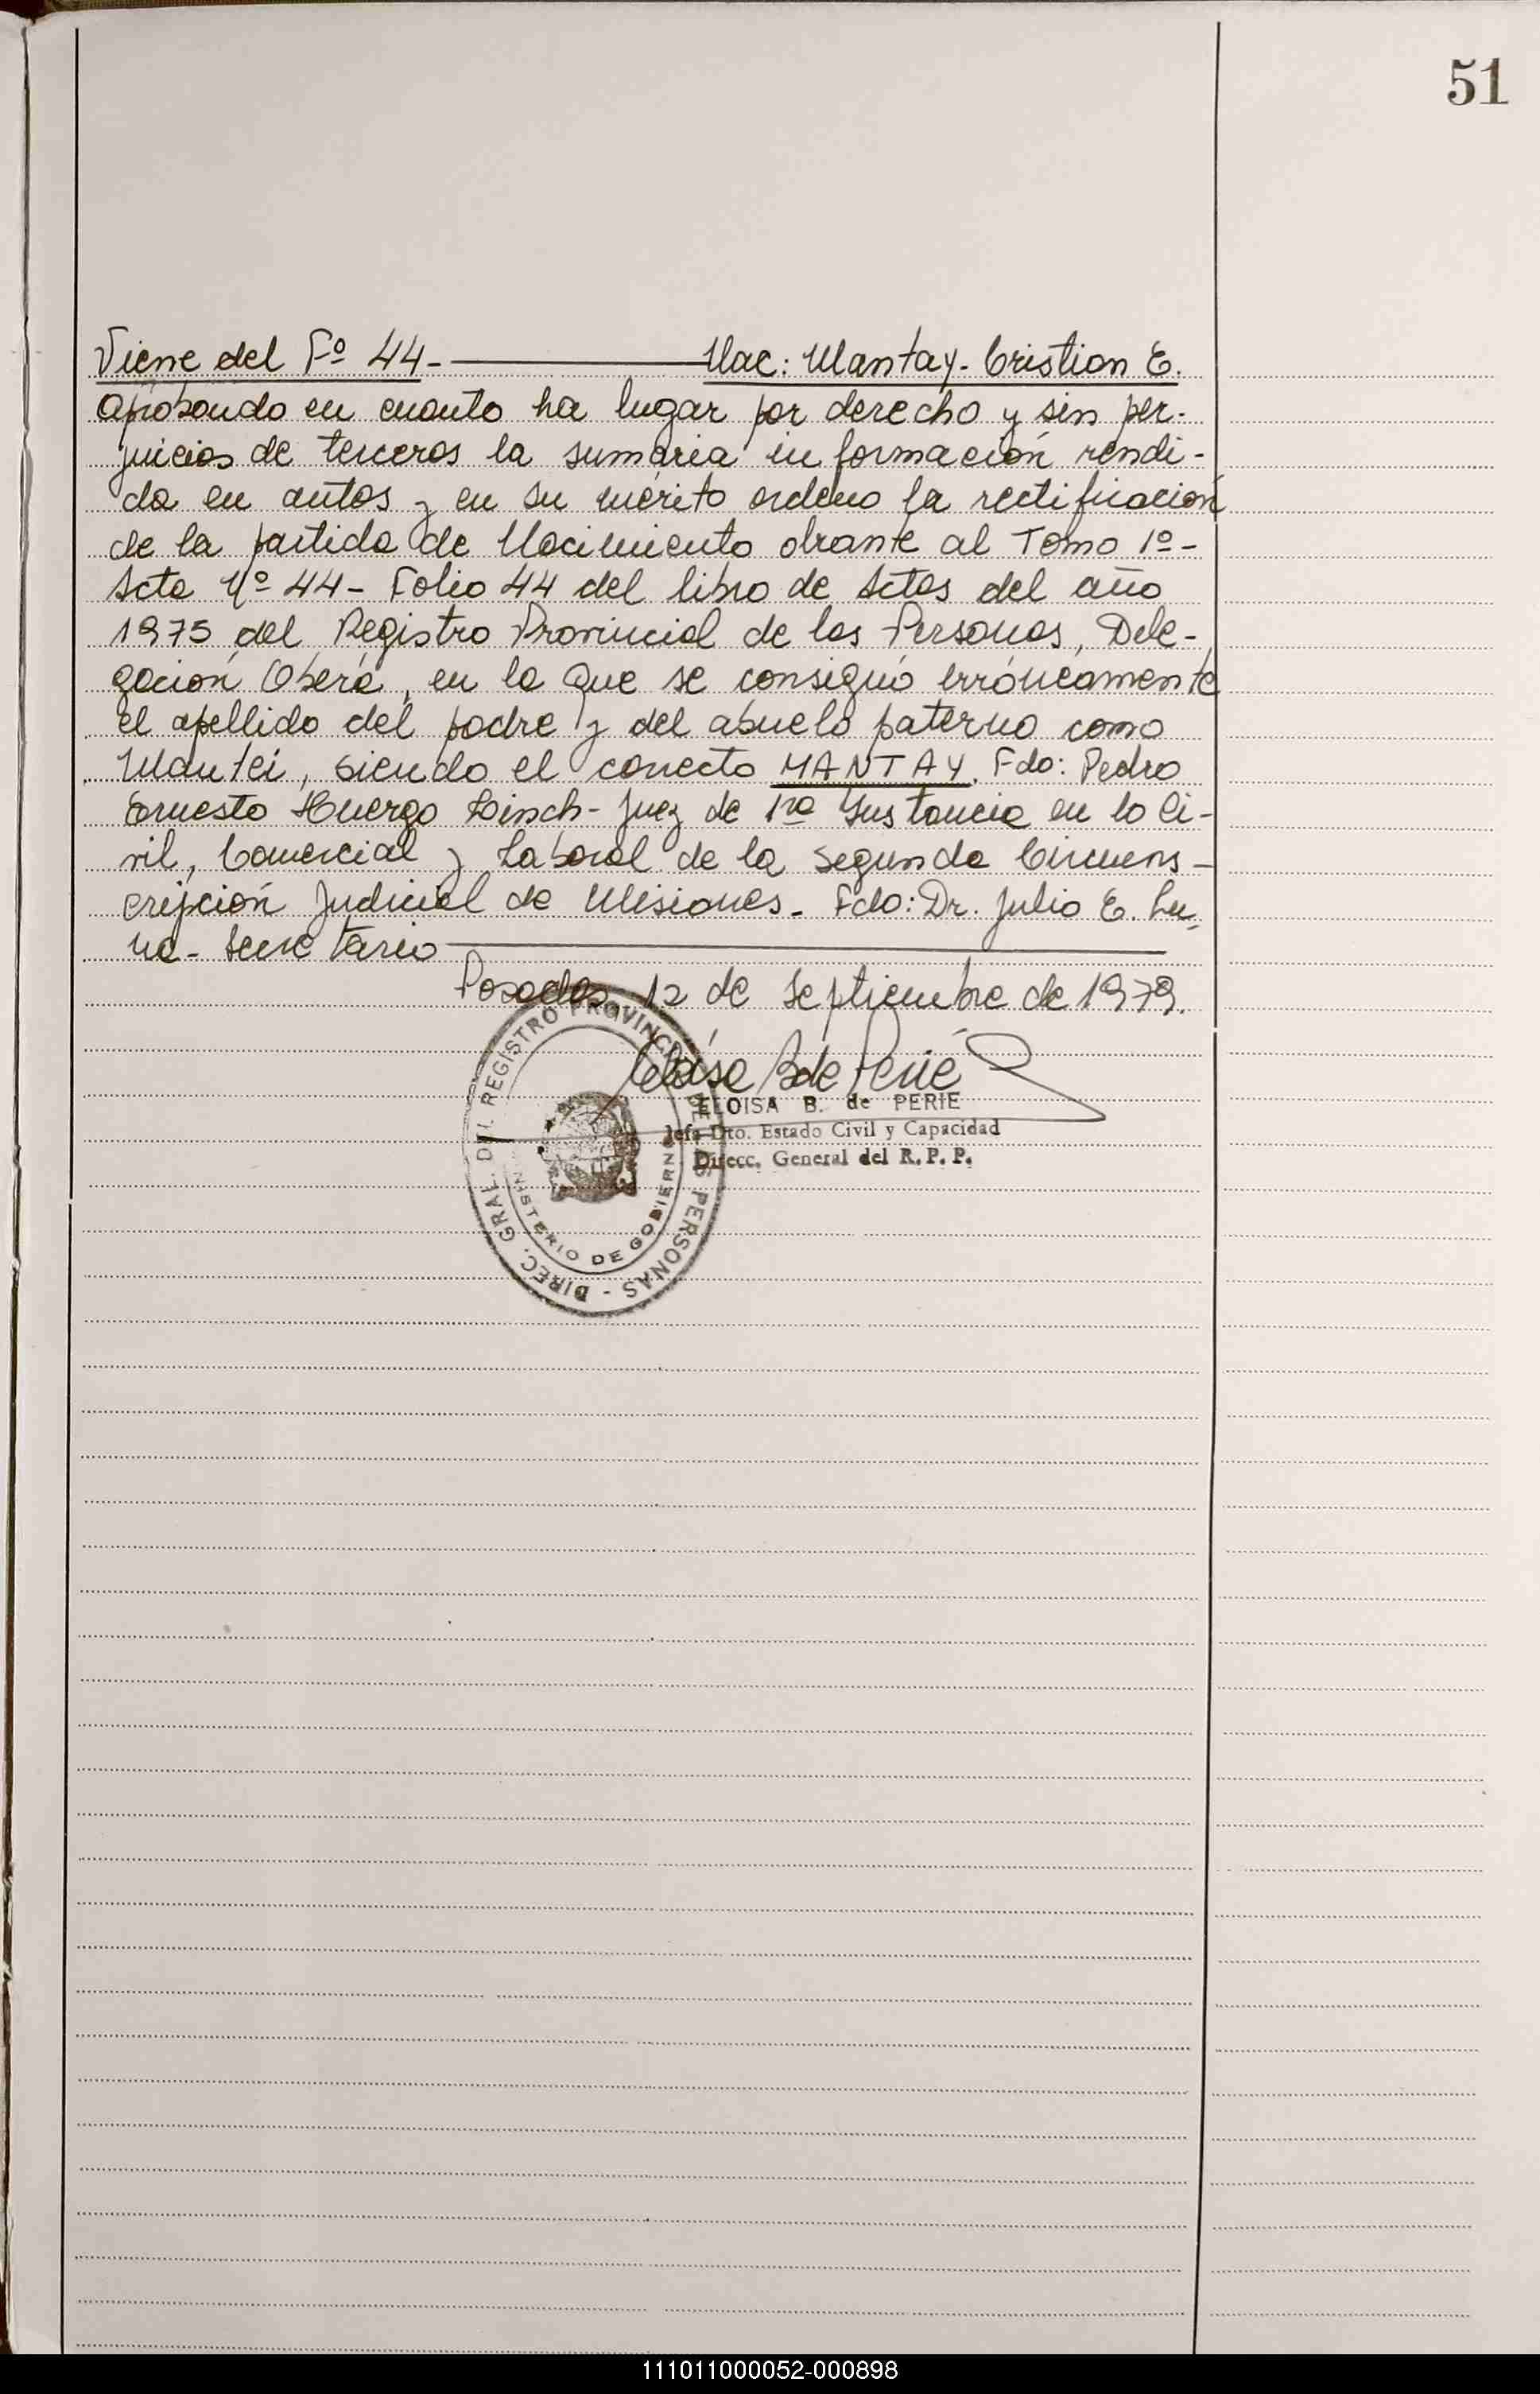 51
Viene del Fº 44- Nac: Mantay- Cristian E.
aprobando en cuanto ha lugar por derecho y sin per-
juicios de terceros la sumaria información rendi-
da en autos y en su mérito ordeno la rectificación
de la partida de Nacimiento obrante al Tomo 1º-
Acta Nº 44- Folio 44 del libro de Actas del año
1975 del Registro Provincial de las Personas, Dele-
gación Oberá, en la que se consignó erróneamente
el apellido del padre y del abuelo paterno como
Mantei, siendo el correcto MANTAY. Fdo: Pedro
Ernesto Huergo Linch- Juez de 1ra Instancia en lo Ci-
vil, Comercial y Laboral de la Segunda Circuns-
cripción Judicial de Misiones- Fdo: Dr. Julio E. Lu-
na- Secretario
Posadas 12 de Septiembre de 1979.
Eloisa B de Perié
ELOISA B. de PERIE
Jefa Dto. Estado Civil y Capacidad
Direcc. General del R. P. P.
DIREC. GRAL. DEL REGISTRO PROVINCIAL DE LAS PERSONAS -
MINISTERIO DE GOBIERNO
111011000052-000898